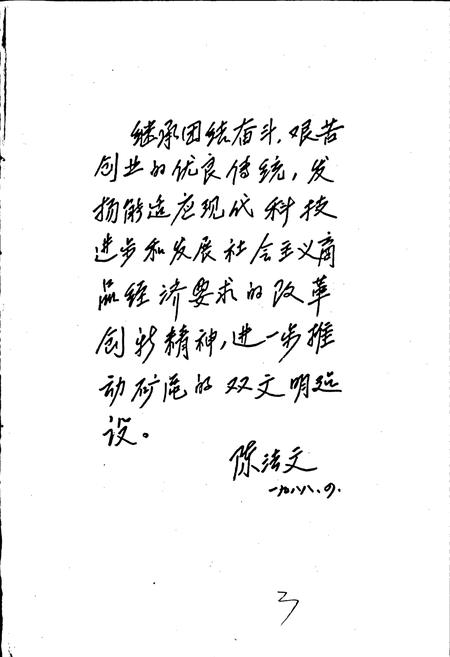 继承团结奋斗、艰苦
创业的优良传统，发
扬能适应现代科技
进步和发展社会主义商
品经济要求的改革
创新精神，进一步推
动矿区的双文明建
设。
陈法文
一九八八.
3